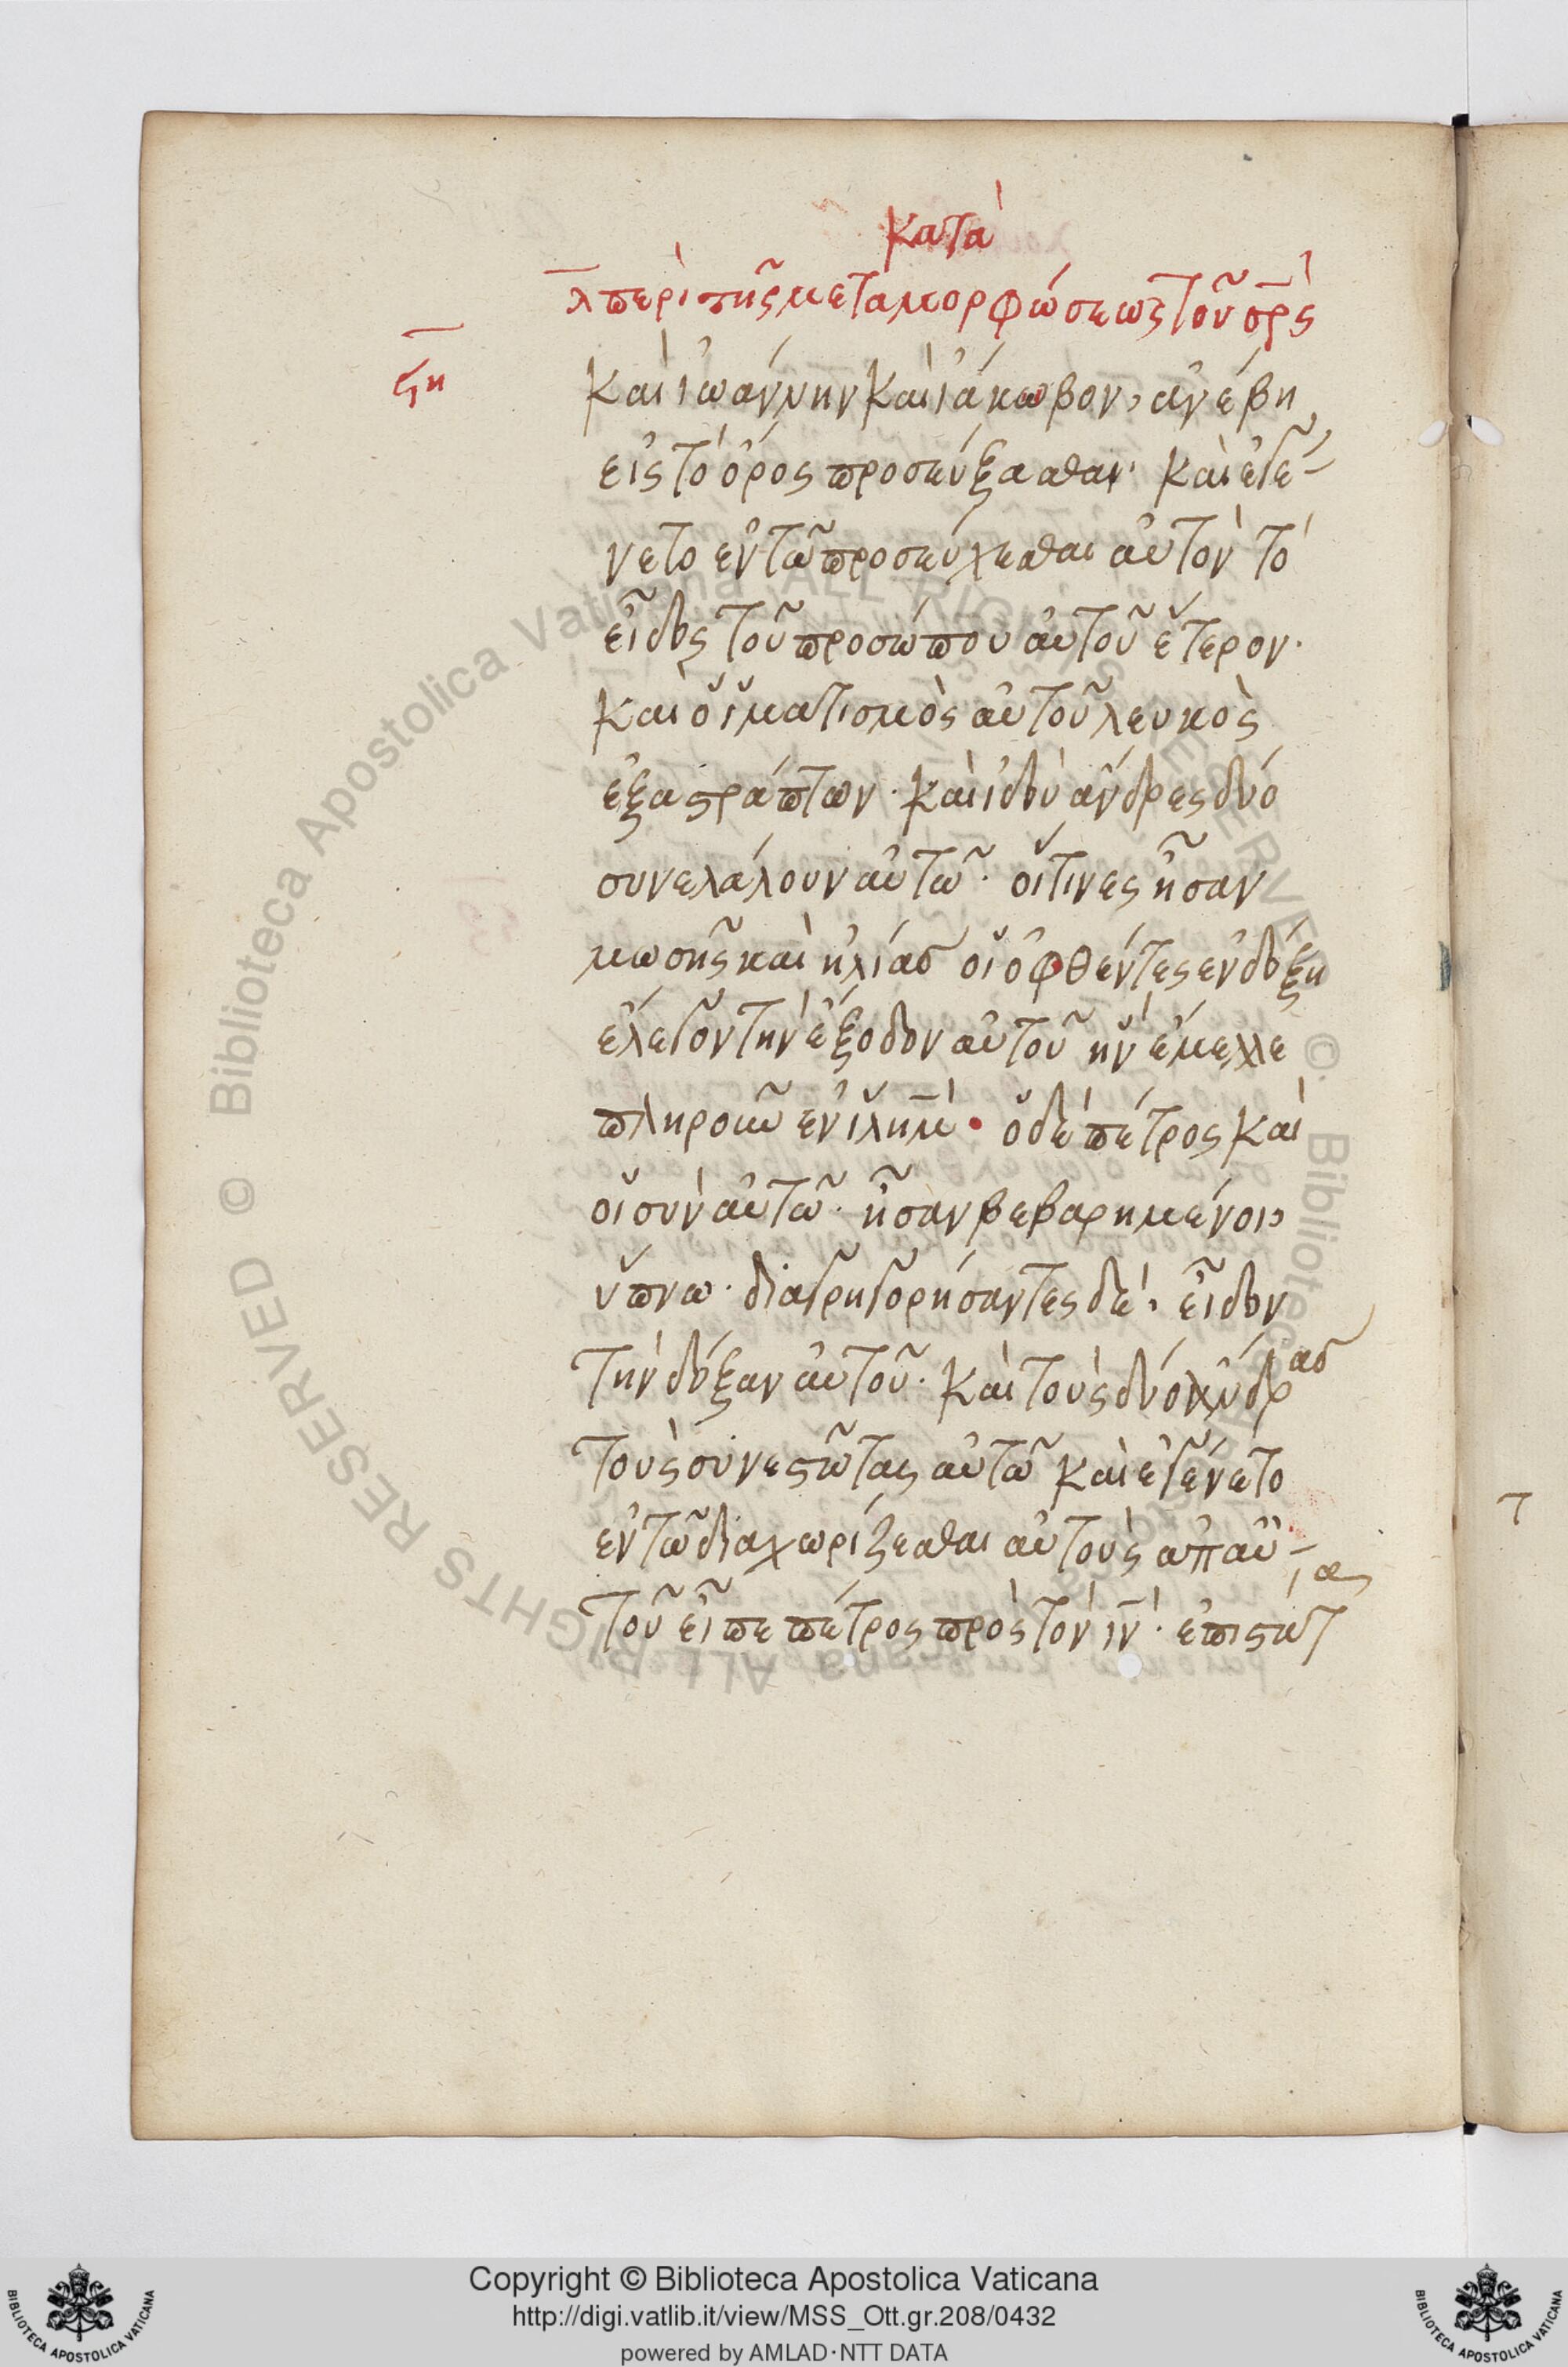 κατὰ
λ περὶ τῆς μεταμορφώσεως τοῦ σρ̅ς
ϟη
καὶ ἰωάννην καὶ ἰάκωβον, ἀνέβη
εἰς τὸ ὄρος προσεύξασθαι· καὶ ἐγέ-
νετο ἐν τῶ προσεύχεσθαι αὐτὸν τὸ
εἶδος τοῦ προσώπου αὐτοῦ ἕτερον·
καὶ ὁ ἱματισμὸς αὐτοῦ λευκὸς
ἐξαστράπτων· καὶ ἰδοὺ ἄνδρες δύο
συνελάλουν αὐτῶ· οἵτινες ἦσαν
μωσῆς καὶ ἠλίας οἱ ὀφθέντες ἐν δόξη
ἔλεγον τὴν ἔξοδον αὐτοῦ ἣν ἔμελλε
πληροῦν ἐν ἱλη̅μ· ὁ δὲ πέτρος καὶ
οἱ σὺν αὐτῶ· ἦσαν βεβαρημένοι,
ὕπνω· διαγρηγορήσαντες δὲ· εἶδον
τὴν δόξαν αὐτοῦ· καὶ τοὺς δύο ἄνδρας
τοὺς συνεστῶτας αὐτῶ καὶ ἐγένετο
ἐν τῶ διαχωρίζεσθαι αὐτοὺς ἀπ αὐ-
τοῦ εἶπε πέτρος πρὸς τὸν ι̅ν· ἐπιστάτα
Copyright © Biblioteca Apostolica Vaticana
http://digi.vatlib.it/view/MSS_Ott.gr.208/0432
powered by AMLAD·NTT DATA
© Biblioteca Apostolica Vaticana ALL RIGHTS RESERVED
© Biblioteca Apostolica Vaticana ALL RIGHTS RESERVED
BIBLIOTECA APOSTOLICA VATICANA
BIBLIOTECA APOSTOLICA VATICANA